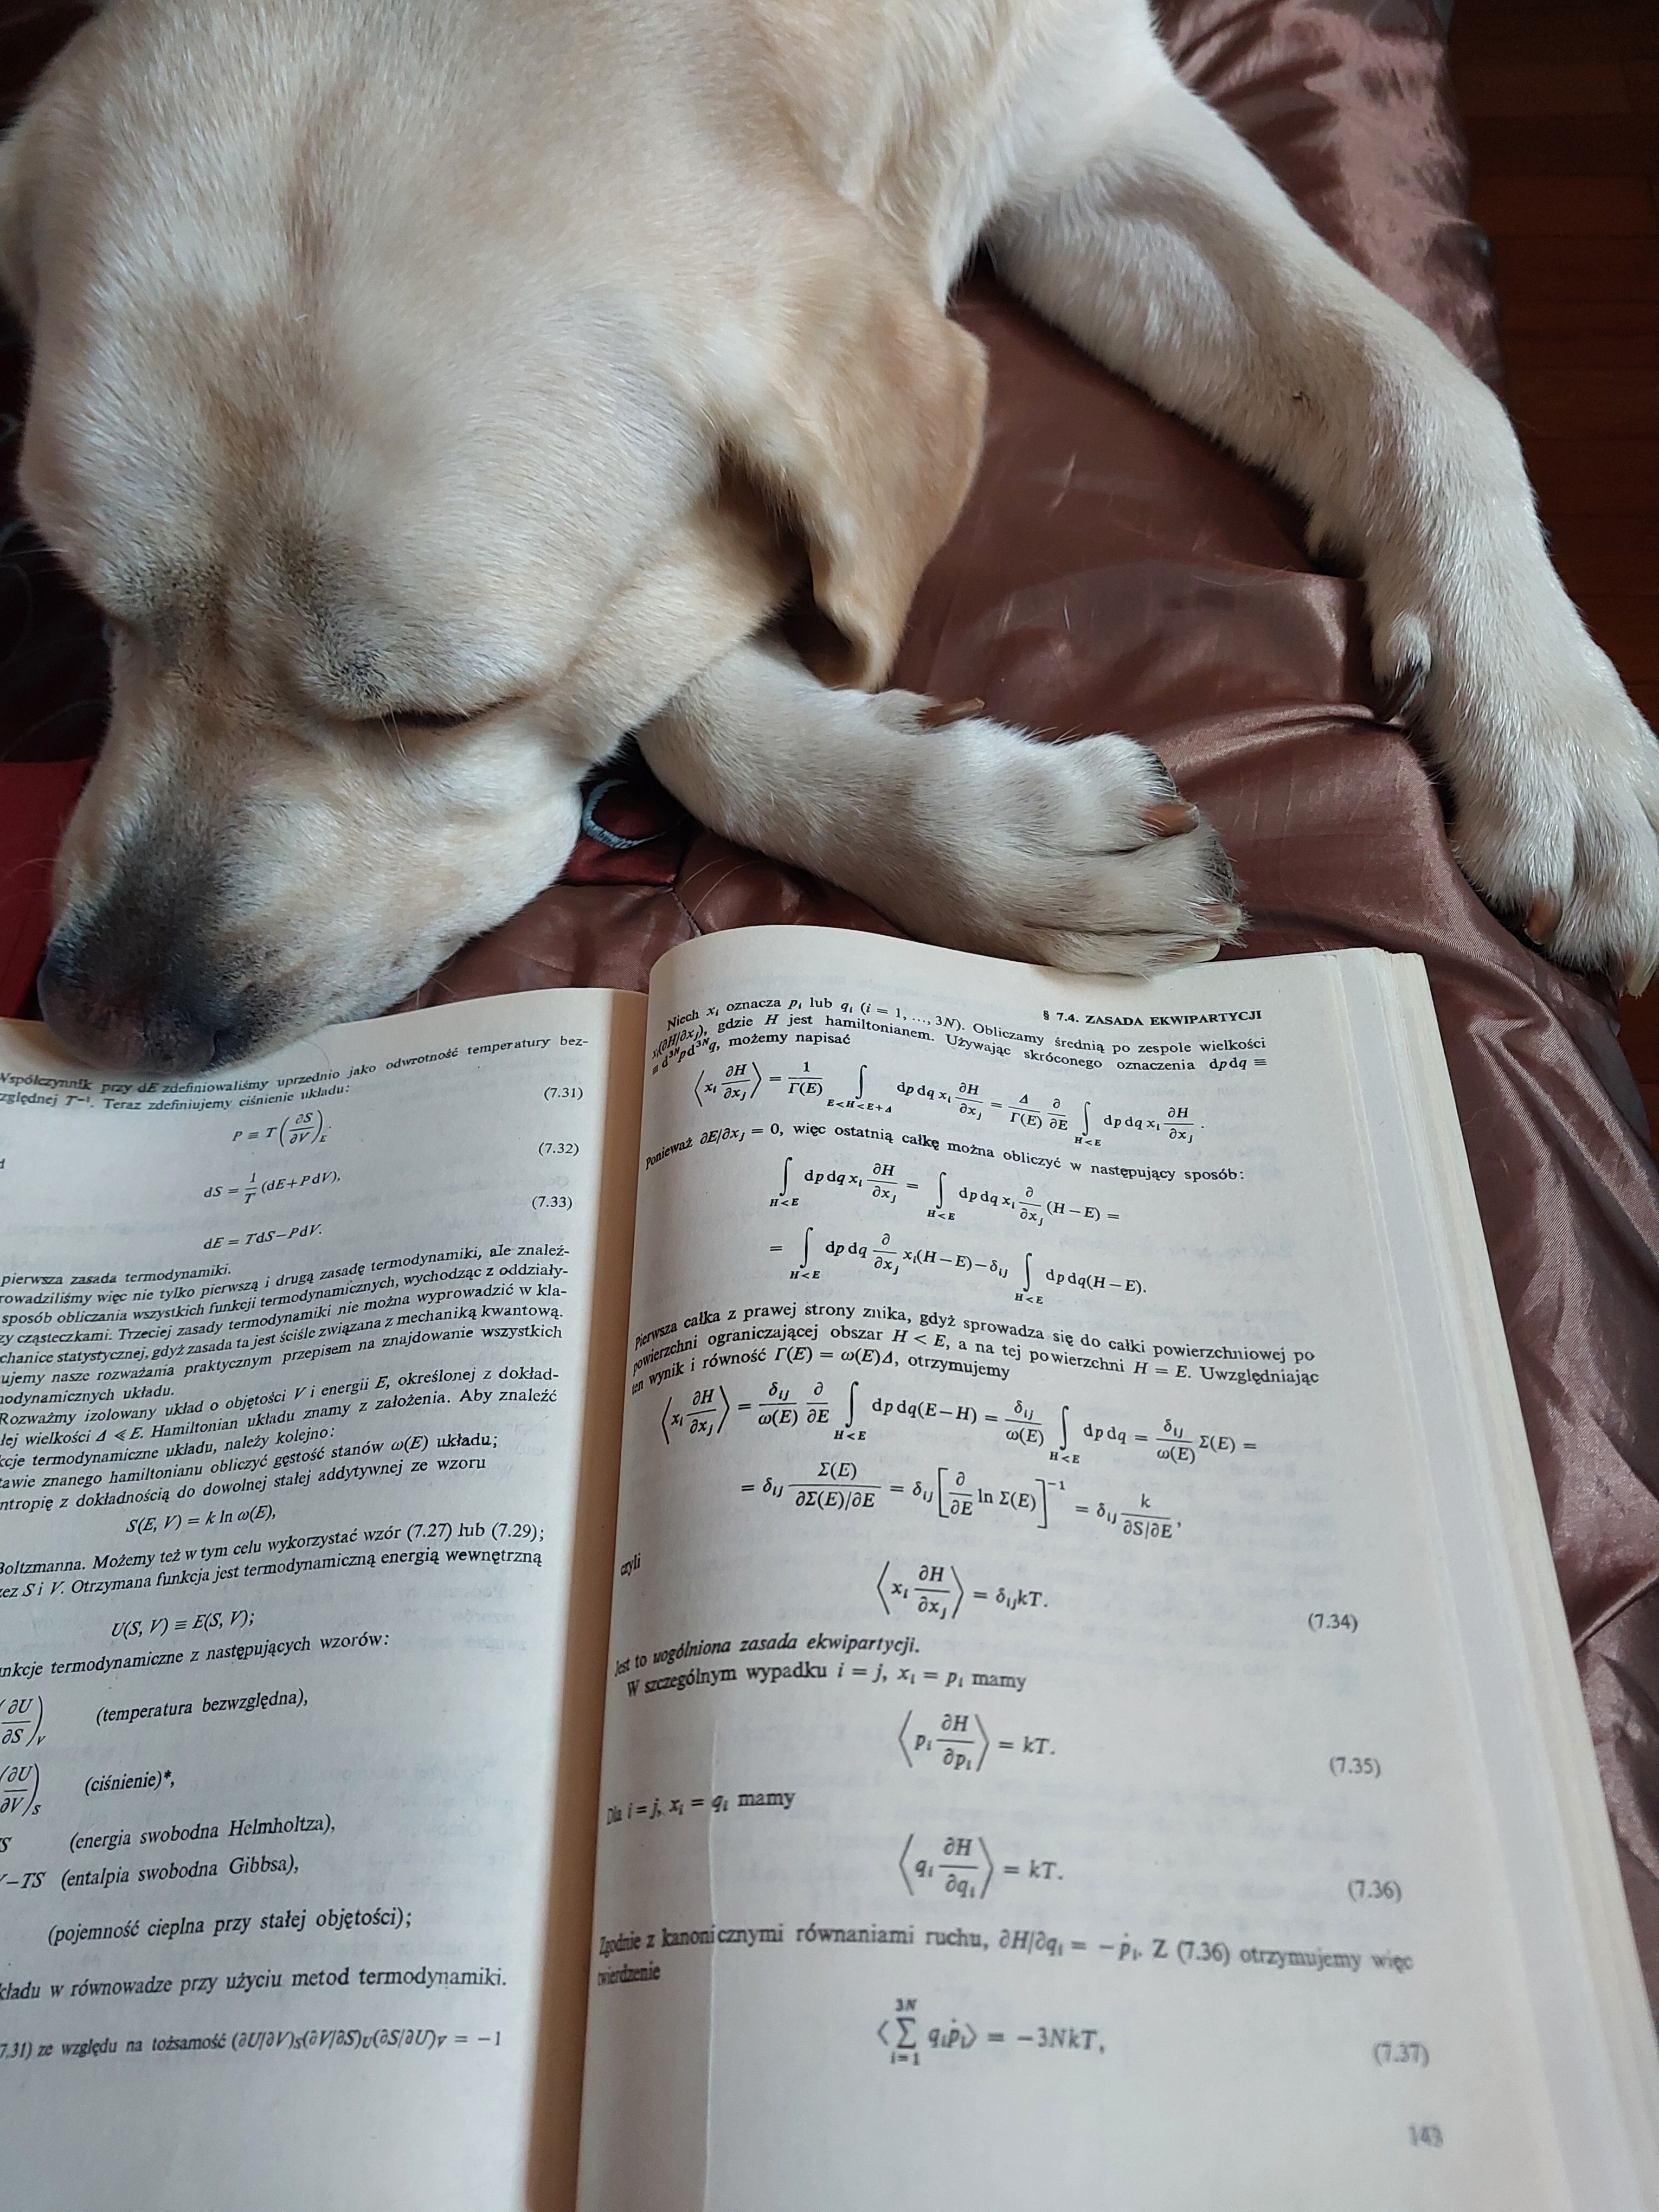 Współczynnik przy dE zdefiniowaliśmy uprzednio jako odwrotność temperatury bez-
względnej T⁻¹. Teraz zdefiniujemy ciśnienie układu:
P ≡ T(∂S/∂V)_E. (7.31)
(7.32)
dS = 1/T (dE+PdV),
(7.33)
dE = TdS−PdV.
pierwsza zasada termodynamiki.
więc nie tylko pierwszą i drugą zasadę termodynamiki, ale znaleź-
sposób obliczania wszystkich funkcji termodynamicznych, wychodząc z oddziały-
cząsteczkami. Trzeciej zasady termodynamiki nie można wyprowadzić w kla-
statystycznej, gdyż zasada ta jest ściśle związana z mechaniką kwantową.
nasze rozważania praktycznym przepisem na znajdowanie wszystkich
układu.
Rozważmy izolowany układ o objętości V i energii E, określonej z dokład-
wielkości Δ ≪ E. Hamiltonian układu znamy z założenia. Aby znaleźć
termodynamiczne układu, należy kolejno:
znanego hamiltonianu obliczyć gęstość stanów ω(E) układu;
z dokładnością do dowolnej stałej addytywnej ze wzoru
S(E, V) = k ln ω(E),
Boltzmanna. Możemy też w tym celu wykorzystać wzór (7.27) lub (7.29);
S i V. Otrzymana funkcja jest termodynamiczną energią wewnętrzną
U(S, V) ≡ E(S, V);
termodynamiczne z następujących wzorów:
(∂U/∂S)_V (temperatura bezwzględna),
(∂U/∂V)_S (ciśnienie)*,
(energia swobodna Helmholtza),
−TS (entalpia swobodna Gibbsa),
(pojemność cieplna przy stałej objętości);
w równowadze przy użyciu metod termodynamiki.
7.31) ze względu na tożsamość (∂U/∂V)_S(∂V/∂S)_U(∂S/∂U)_V = −1
§ 7.4. ZASADA EKWIPARTYCJI
Niech x_i oznacza p_i lub q_i (i = 1, ..., 3N). Obliczamy średnią po zespole wielkości
x_i(∂H/∂x_j), gdzie H jest hamiltonianem. Używając skróconego oznaczenia dpdq ≡
≡ d³ᴺpd³ᴺq, możemy napisać
⟨x_i ∂H/∂x_j⟩ = 1/Γ(E) ∫_{E<H<E+Δ} dp dq x_i ∂H/∂x_j = Δ/Γ(E) ∂/∂E ∫_{H<E} dp dq x_i ∂H/∂x_j.
Ponieważ ∂E/∂x_j = 0, więc ostatnią całkę można obliczyć w następujący sposób:
∫_{H<E} dp dq x_i ∂H/∂x_j = ∫_{H<E} dp dq x_i ∂/∂x_j (H−E) =
= ∫_{H<E} dp dq ∂/∂x_j x_i(H−E)−δ_ij ∫_{H<E} dp dq(H−E).
Pierwsza całka z prawej strony znika, gdyż sprowadza się do całki powierzchniowej po
powierzchni ograniczającej obszar H < E, a na tej powierzchni H = E. Uwzględniając
ten wynik i równość Γ(E) = ω(E)Δ, otrzymujemy
⟨x_i ∂H/∂x_j⟩ = δ_ij/ω(E) ∂/∂E ∫_{H<E} dp dq(E−H) = δ_ij/ω(E) ∫_{H<E} dp dq = δ_ij/ω(E) Σ(E) =
= δ_ij Σ(E)/∂Σ(E)/∂E = δ_ij[∂/∂E ln Σ(E)]⁻¹ = δ_ij k/∂S/∂E,
czyli
⟨x_i ∂H/∂x_j⟩ = δ_ij kT. (7.34)
Jest to uogólniona zasada ekwipartycji.
W szczególnym wypadku i = j, x_i = p_i mamy
⟨p_i ∂H/∂p_i⟩ = kT. (7.35)
Dla i = j, x_i = q_i mamy
⟨q_i ∂H/∂q_i⟩ = kT. (7.36)
Zgodnie z kanonicznymi równaniami ruchu, ∂H/∂q_i = −ṗ_i. Z (7.36) otrzymujemy więc
twierdzenie
⟨Σ_{i=1}^{3N} q_iṗ_i⟩ = −3NkT, (7.37)
143